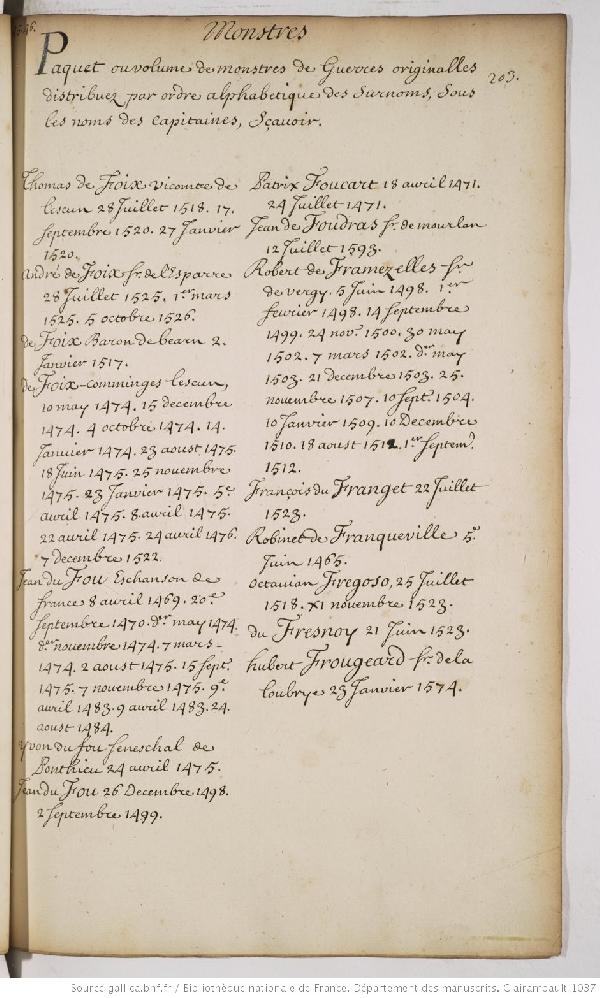 Monstres
203.
Paquet ou volume de monstres de Guerres originalles
distribuez par ordre alphabetique des Surnoms, Sous
les noms des capitaines, Sçavoir.
Thomas de Foix vicomte de
lescun 28 Juillet 1518. 17.
septembre 1520. 27 Janvier
1520.
André de Foix sr. de l'Esparre
28 Juillet 1525. 1er mars
1525. 5 octobre 1526.
de Foix Baron de bearn 2.
Janvier 1517.
de Foix-comminges lescun,
10 may 1474. 15 decembre
1474. 4 octobre 1474. 14.
Janvier 1474. 23 aoust 1475.
18 Juin 1475. 25 novembre
1475. 23 Janvier 1475. 5e
avril 1475. 8 avril 1475.
22 avril 1475. 24 avril 1476.
7 decembre 1522.
Jean du Fou Eschanson de
france 8 avril 1469. 20e
septembre 1470. der may 1474.
der novembre 1474. 7 mars-
1474. 2 aoust 1475. 15 sept.
1475. 7 novembre 1475. 9e
avril 1483. 9 avril 1483. 24.
aoust 1484.
yvon du fou seneschal de
Ponthieu 24 avril 1475.
Jean du Fou 26 Decembre 1498.
2 septembre 1499.
Patrix Foucart 18 avril 1471.
24 Juillet 1471.
Jean de Foudras sr. de mourlan
12 Juillet 1593.
Robert de Framezelles sr.
de vergy. 5 Juin 1498. 1er
fevrier 1498. 14 septembre
1499. 24 nov. 1500. 30 may
1502. 7 mars 1502. der may
1503. 21 decembre 1503. 25.
novembre 1507. 10 sept. 1504.
10 Janvier 1509. 10 Decembre
1510. 18 aoust 1512. 1er septem.
1512.
François du Franget 22 Juillet
1523.
Robinet de Franqueville 5e
Juin 1465.
octavian Fregoso, 25 Juillet
1518. XI novembre 1523.
du Fresnoy 21 Juin 1523.
hubert Frougeard sr. de la
Coubrye 23 Janvier 1574.
Source gallica.bnf.fr / Bibliothèque nationale de France. Département des manuscrits. Clairambault 1087